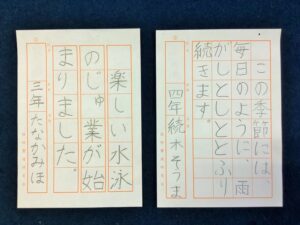 この季節には、
毎日のように、雨
がしとしととふり
続きます。
四年続木そうま
楽しい水泳
のじゅ業が始
まりました。
三年たなかみほ